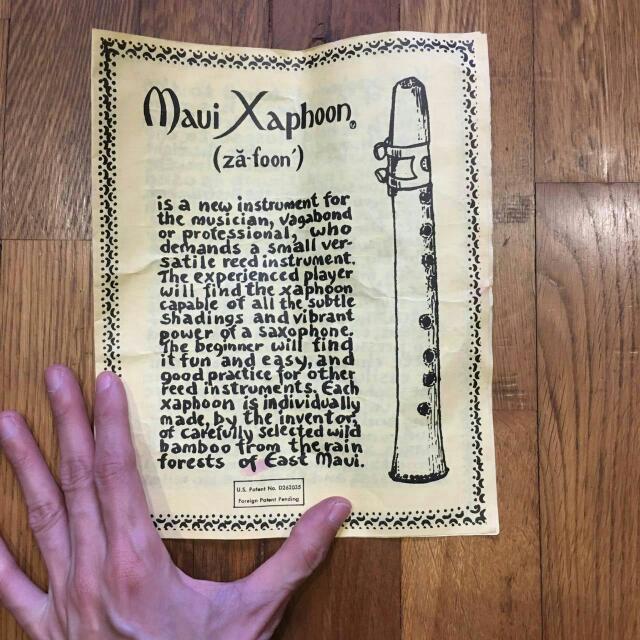 Maui Xaphoon®
(ză-foon')
is a new instrument for
the musician, vagabond
or professional, who
demands a small ver-
satile reed instrument.
The experienced player
will find the xaphoon
capable of all the subtle
shadings and vibrant
power of a saxophone.
The beginner will find
it fun and easy, and
good practice for other
reed instruments. Each
xaphoon is individually
made, by the inventor,
of carefully selected wild
bamboo from the rain
forests of East Maui.
U.S. Patent No. D262035
Foreign Patent Pending